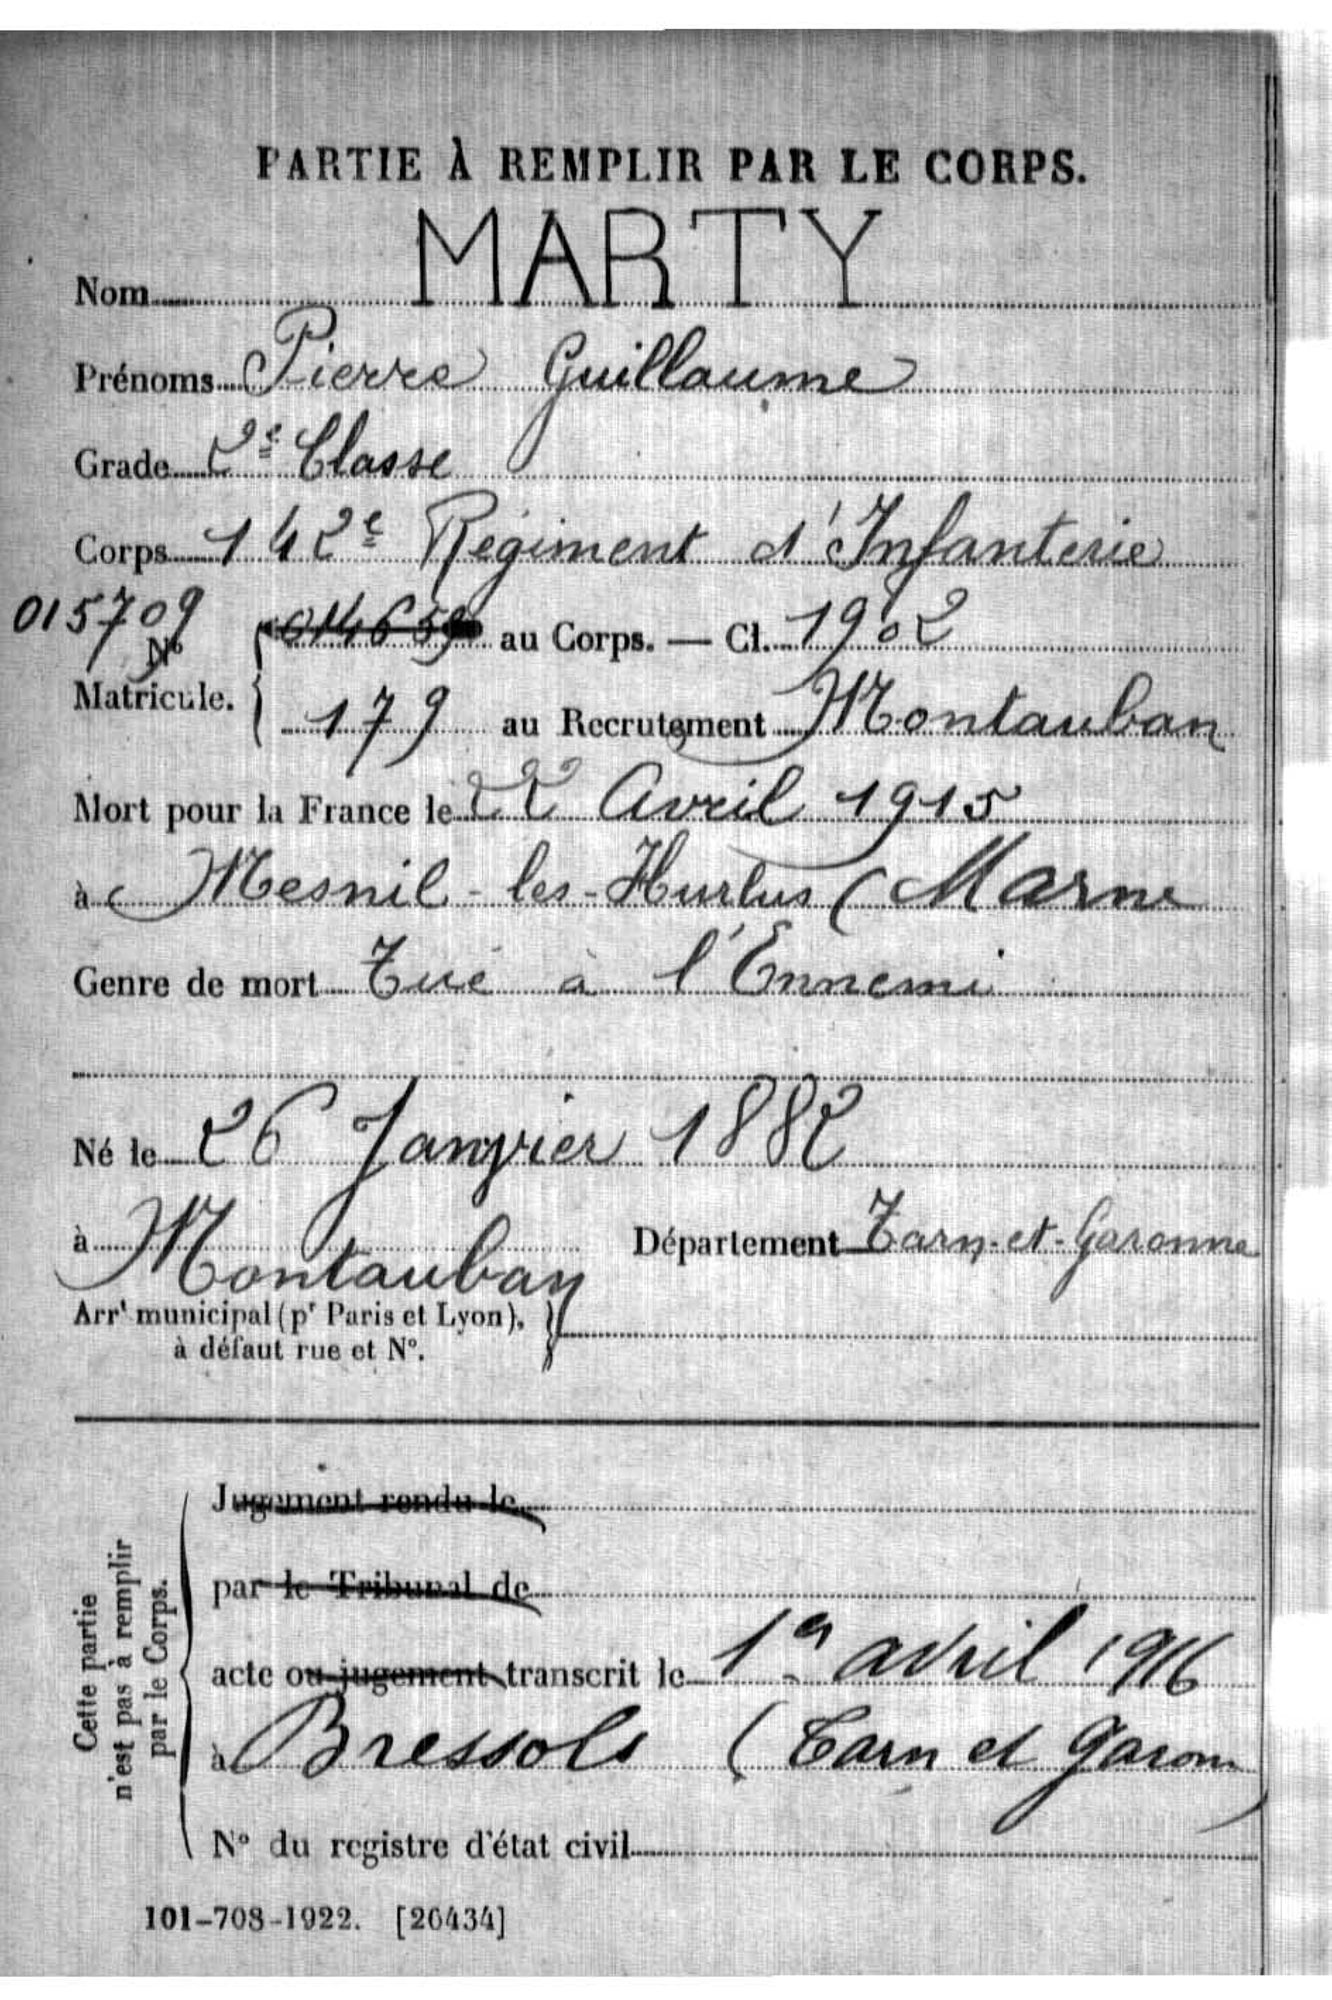 PARTIE À REMPLIR PAR LE CORPS.
Nom MARTY
Prénoms Pierre Guillaume
Grade 2e Classe
Corps 142e Régiment d'Infanterie
015709
No
Matricule. 014659 au Corps. — Cl. 1902
179 au Recrutement Montauban
Mort pour la France le 22 Avril 1915
à Mesnil-les-Hurlus (Marne
Genre de mort Tué à l'Ennemi
Né le 26 Janvier 1882
à Montauban Département Tarn-et-Garonne
Arrt municipal (pr Paris et Lyon),
à défaut rue et N°.
Cette partie
n'est pas à remplir
par le Corps.
Jugement rendu le
par le Tribunal de
acte ou jugement transcrit le 1er avril 1916
à Bressols (Tarn et Garonn)
N° du registre d'état civil
101-708-1922. [26434]